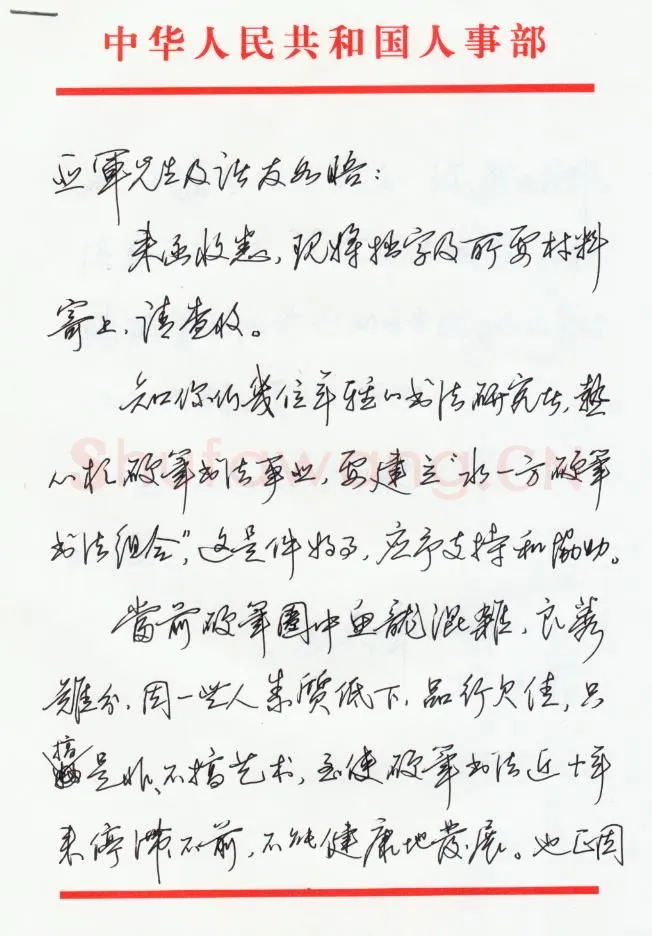 中华人民共和国人事部
亚軍先生及诸友如晤：
来函收悉，现将拙字及所要材料
寄上，请查收。
知你们幾位年轻的书法研究者，熱
心於硬筆书法事业，要建立“水一方硬筆
书法组合”，这是件好事，应予支持和协助。
當前硬筆圈中鱼龍混雜，良莠
難分，因一些人素質低下，品行欠佳，只
搞是非、不搞艺术，至使硬筆书法近十年
来停滞不前，不能健康地發展。也正因
Shufawang.CN